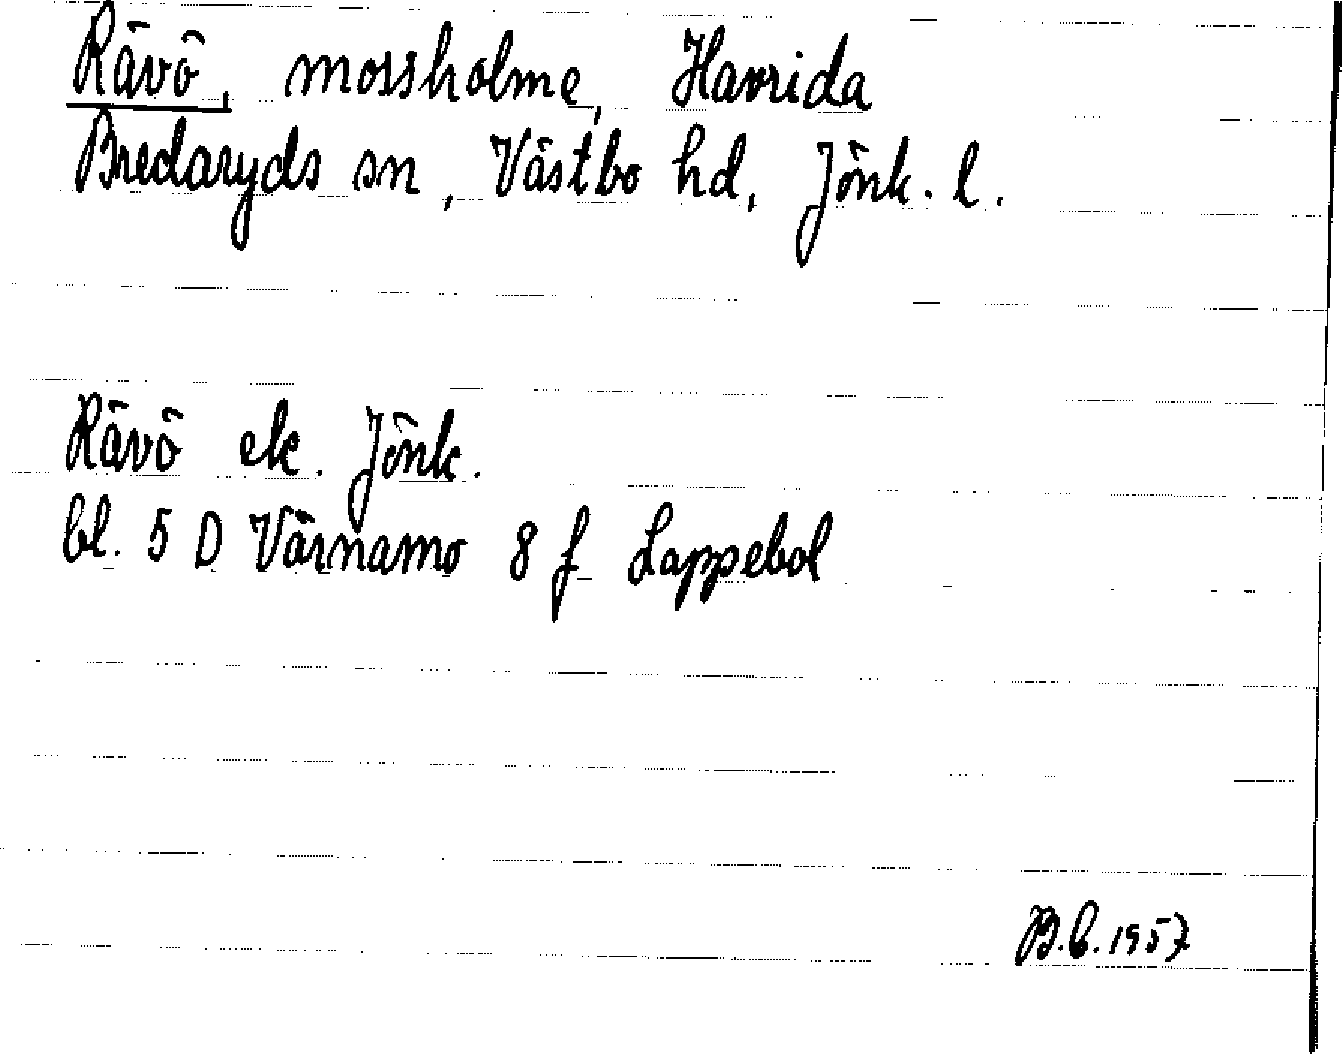 Rävö, mossholme, Havrida
Bredaryds sn, Västbo hd, Jönk. l.
Rävö ek. Jönk.
bl. 5 D Värnamo 8 f Lappebol
B.b. 1957